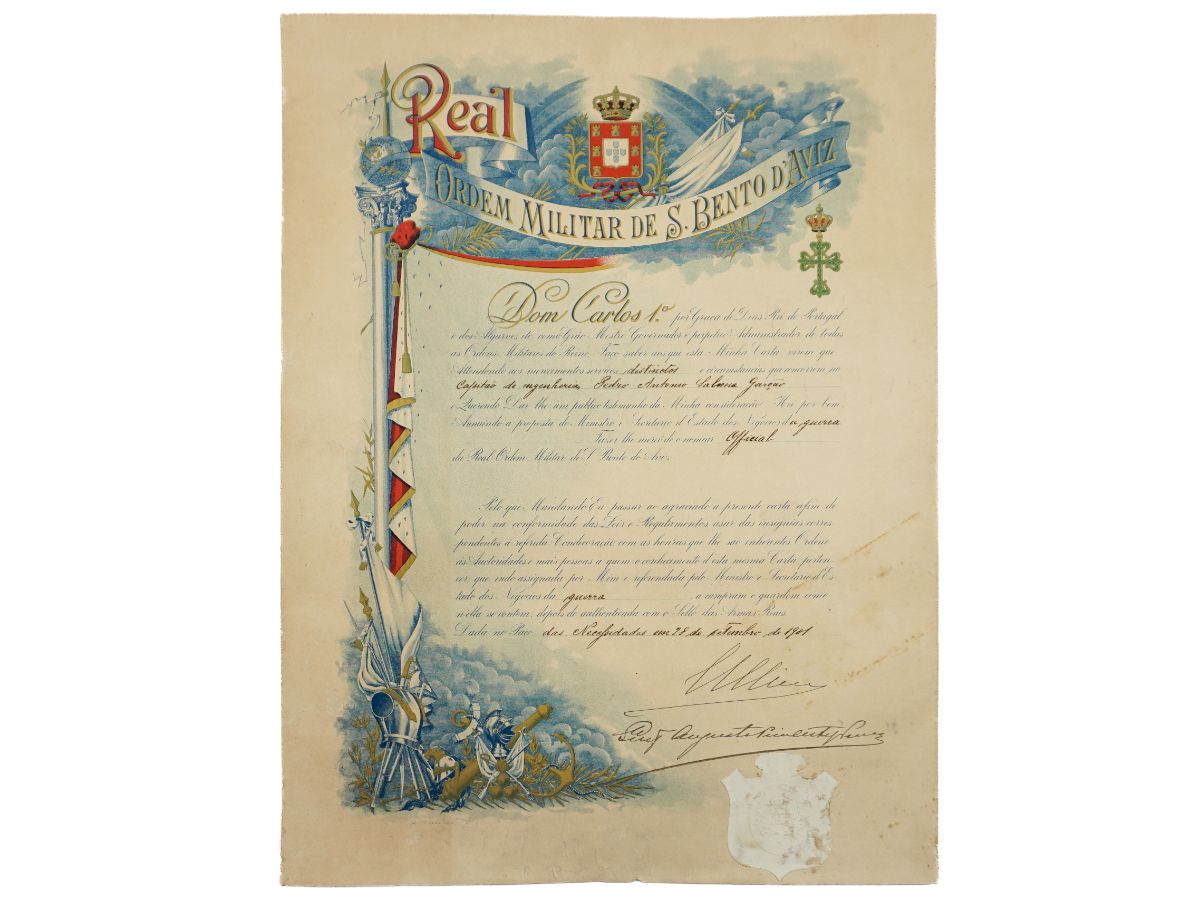 Real
ORDEM MILITAR DE S. BENTO D'AVIZ
Dom Carlos 1.º por Graça de Deus Rei de Portugal
e dos Algarves, etc como Grão-Mestre Governador e perpetuo Administrador de todas
as Ordens Militares do Reino, Faço saber aos que esta Minha Carta virem que
Attendendo aos merecimentos serviços distinctos e circumstancias que concorrem no
Capitão de engenheria, Pedro Antonio Salema Garção
e Querendo Dar lhe um publico testemunho da Minha consideração Hei por bem,
Annuindo a proposta do Ministro e Secretario d'Estado dos Negocios da guerra
Fazer lhe mercê de o nomear Official
da Real Ordem Militar de S. Bento de Aviz.
Pelo que Mandando Eu passar ao agraciado a presente carta afim de
poder na conformidade das Leis e Regulamentos usar das insignias corres
pendentes á referida Condecoração, com as honras que lhe são inherentes Ordeno
ás Auctoridades e mais pessoas a quem o conhecimento d'esta mesma Carta perten
cer que indo assignada por Mim e referendada pelo Ministro e Secretario d'Es
tado dos Negocios da guerra a cumpram e guardem como
n'ella se contem, depois de authenticada com o Sello das Armas Reaes.
Dada no Paço das Necessidades em 28 de setembro de 1901
Luiz Augusto Pimentel Pinto